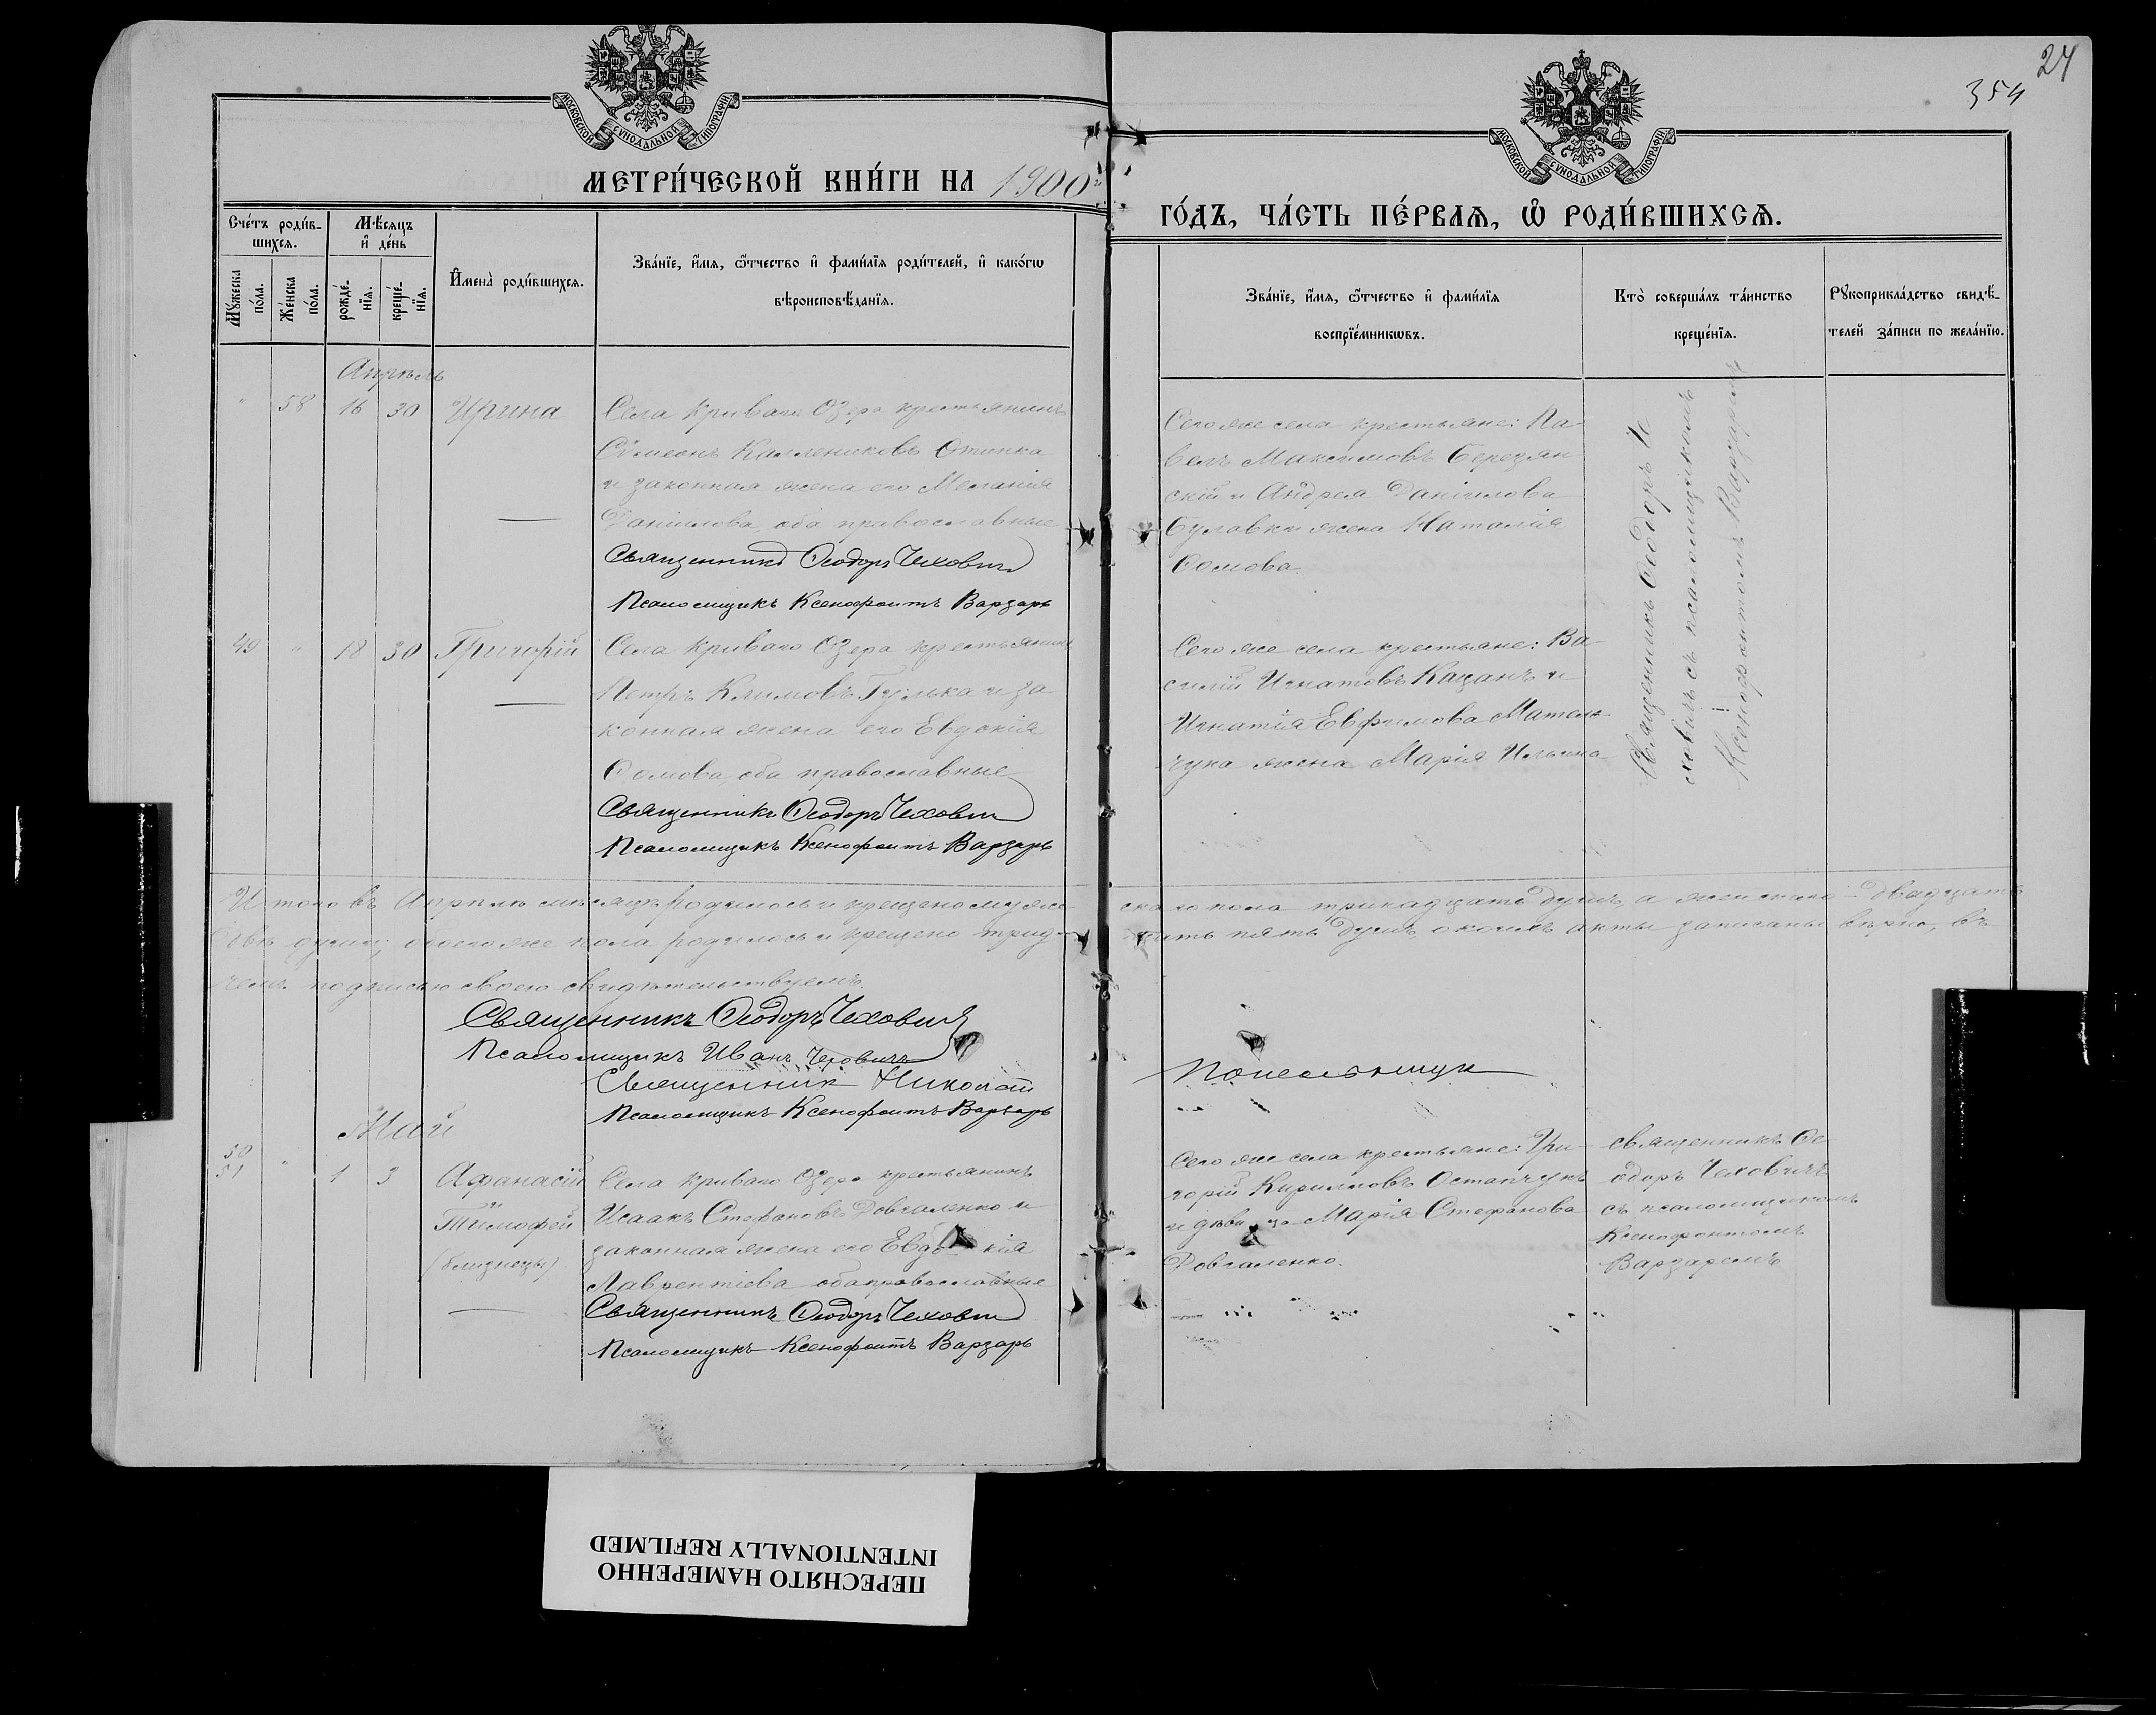 24
354
МОСКОВСКОЙ СУНОДАЛЬНОЙ ТИПОГРАФІИ
МОСКОВСКОЙ СУНОДАЛЬНОЙ ТИПОГРАФІИ
МЕТРИ́ЧЕСКОЙ КНИ́ГИ НА 1900
ГО́ДЪ, ЧА́СТЬ ПЕ́РВАѦ, Ѽ РОДИ́ВШИХСѦ.
Сче́тъ роди́в-
шихсѧ.
Мѣ́сѧцъ
и҆ де́нь
Мꙋ́жеска
по́ла.
Же́нска
по́ла.
рожде́-
нїѧ.
креще́-
нїѧ.
И҆мена̀ роди́вшихсѧ.
Зва́нїе, и҆́мѧ, ѻ҆́тчество и҆ фами́лїѧ роди́телей, и҆ како́гѡ
вѣроисповѣ́данїѧ.
Зва́нїе, и҆́мѧ, ѻ҆́тчество и҆ фами́лїѧ
воспрїе́мникѡвъ.
Кто̀ соверша́лъ та́инство
креще́нїѧ.
Рꙋкоприкла́дство свидѣ́-
телей за́писи по жела́нїю.
Апрѣль
" 58 16 30 Ирина
Села Криваго Озера крестьянинъ
Сѷмеонъ Каллениковъ
и законная жена его Меланія
Даніилова, оба православные
Священникъ Ѳеодоръ Чеховичъ
Псаломщикъ Ксенофонтъ Варзарь
Сего же села крестьяне: Па-
велъ Максимовъ Березян-
скій и Андрея Даніилова
Булавки жена Наталія
Ѳомова.
Священникъ Ѳеодоръ Че
ховичъ съ псаломщикомъ
Ксенофонтомъ Варзаремъ
49 " 18 30 Григорій
Села Криваго Озера крестьянинъ
Петръ Климовъ Гулька и за
конная жена его Евдокія
Ѳомова, оба православные
Священникъ Ѳеодоръ Чеховичъ
Псаломщикъ Ксенофонтъ Варзарь
Сего же села крестьяне: Ва-
силій Игнатовъ Казанъ и
Игнатія Евфимова Мател-
чука жена Марія Ильина
Итого въ Апрѣлѣ мѣсяцѣ родилось и крещено муже-
скаго пола тринадцать душъ, а женскаго двадцать
двѣ души; обоего же пола родилось и крещено трид-
цать пять душъ, о коихъ акты записаны вѣрно, въ
чемъ подписью своею свидѣтельствуемъ.
Священникъ Ѳеодоръ Чеховичъ
Псаломщикъ Иванъ Чеховичъ
Священник Николай
Псаломщикъ Ксенофонтъ Варзарь
Май
50
51 " 1 3 Аѳанасій
и
Тимофей
(близнецы)
Села Криваго Озера крестьянинъ
Исаакъ Стефановъ Довгаленко и
законная жена его Евдокія
Лаврентіева оба православные
Священникъ Ѳеодоръ Чеховичъ
Псаломщикъ Ксенофонтъ Варзарь
Сего же села крестьяне: Гри-
горій Кирилловъ Остапчукъ
и дѣвица Марія Стефанова
Довгаленко.
Священникъ Ѳе-
одоръ Чеховичъ
съ псаломщикомъ
Ксенофонтомъ
Варзаремъ
ПЕРЕСНЯТО НАМЕРЕННО
INTENTIONALLY REFILMED